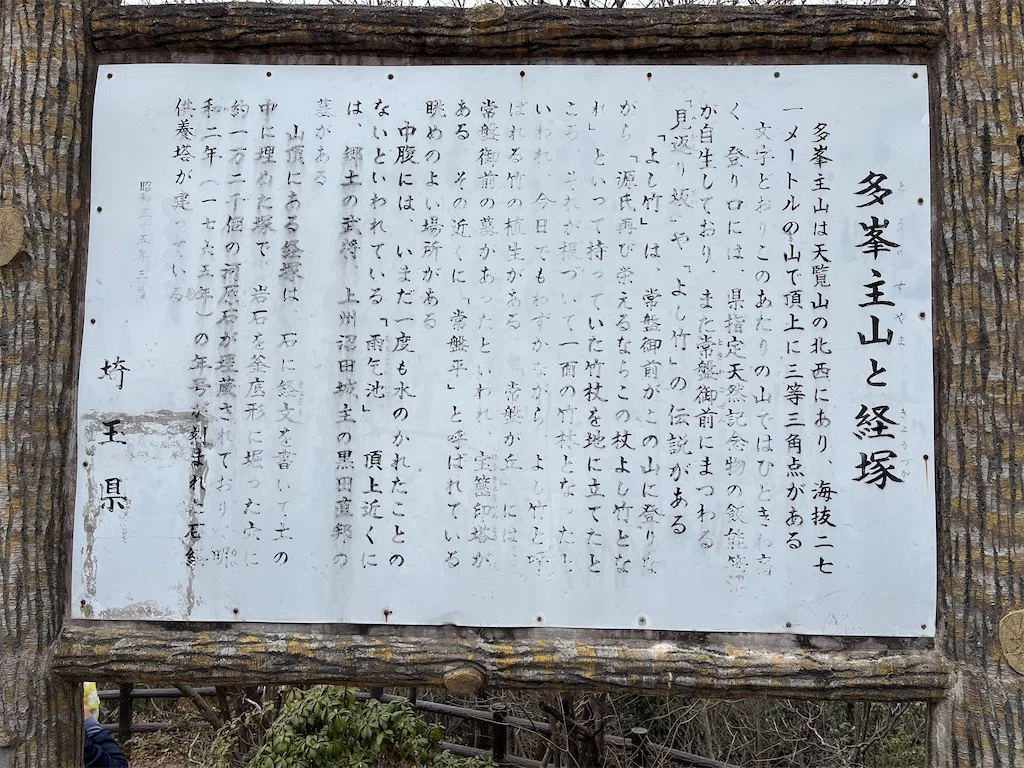 多峯主山と経塚
とうのすやまきょうづか
多峯主山は天覧山の北西にあり、海抜二七
一メートルの山で頂上に三等三角点がある
文字どおりこのあたりの山ではひときわ高
く、登り口には、県指定天然記念物の飯能笹
が自生しており、また常盤御前にまつわる
ときわ
「見返り坂」や「よし竹」の伝説がある
「よし竹」は、常盤御前がこの山に登りな
がら「源氏再び栄えるならこの杖よし竹とな
れ」といって持っていた竹杖を地に立てたと
ころ、それが根づいて一面の竹林となったと
いわれ、今日でもわずかながら、よし竹と呼
ばれる竹の植生がある 「常盤が丘」には、
常盤御前の墓があったといわれ、宝篋印塔が
ある その近くに「常盤平」と呼ばれている
眺めのよい場所がある
中腹には、いまだ一度も水のかれたことの
ないといわれている「雨乞池」 頂上近くに
は、郷土の武将 上州沼田城主の黒田直邦の
墓がある
山頂にある経塚は 石に経文を書いて土の
中に埋めた塚で、岩石を釜座形に掘った穴に
約一万二千個の河原石が埋蔵されており 明
和二年(一七六五年)の年号が刻まれた石経
供養塔が建っている
昭和五十五年三月
埼玉県